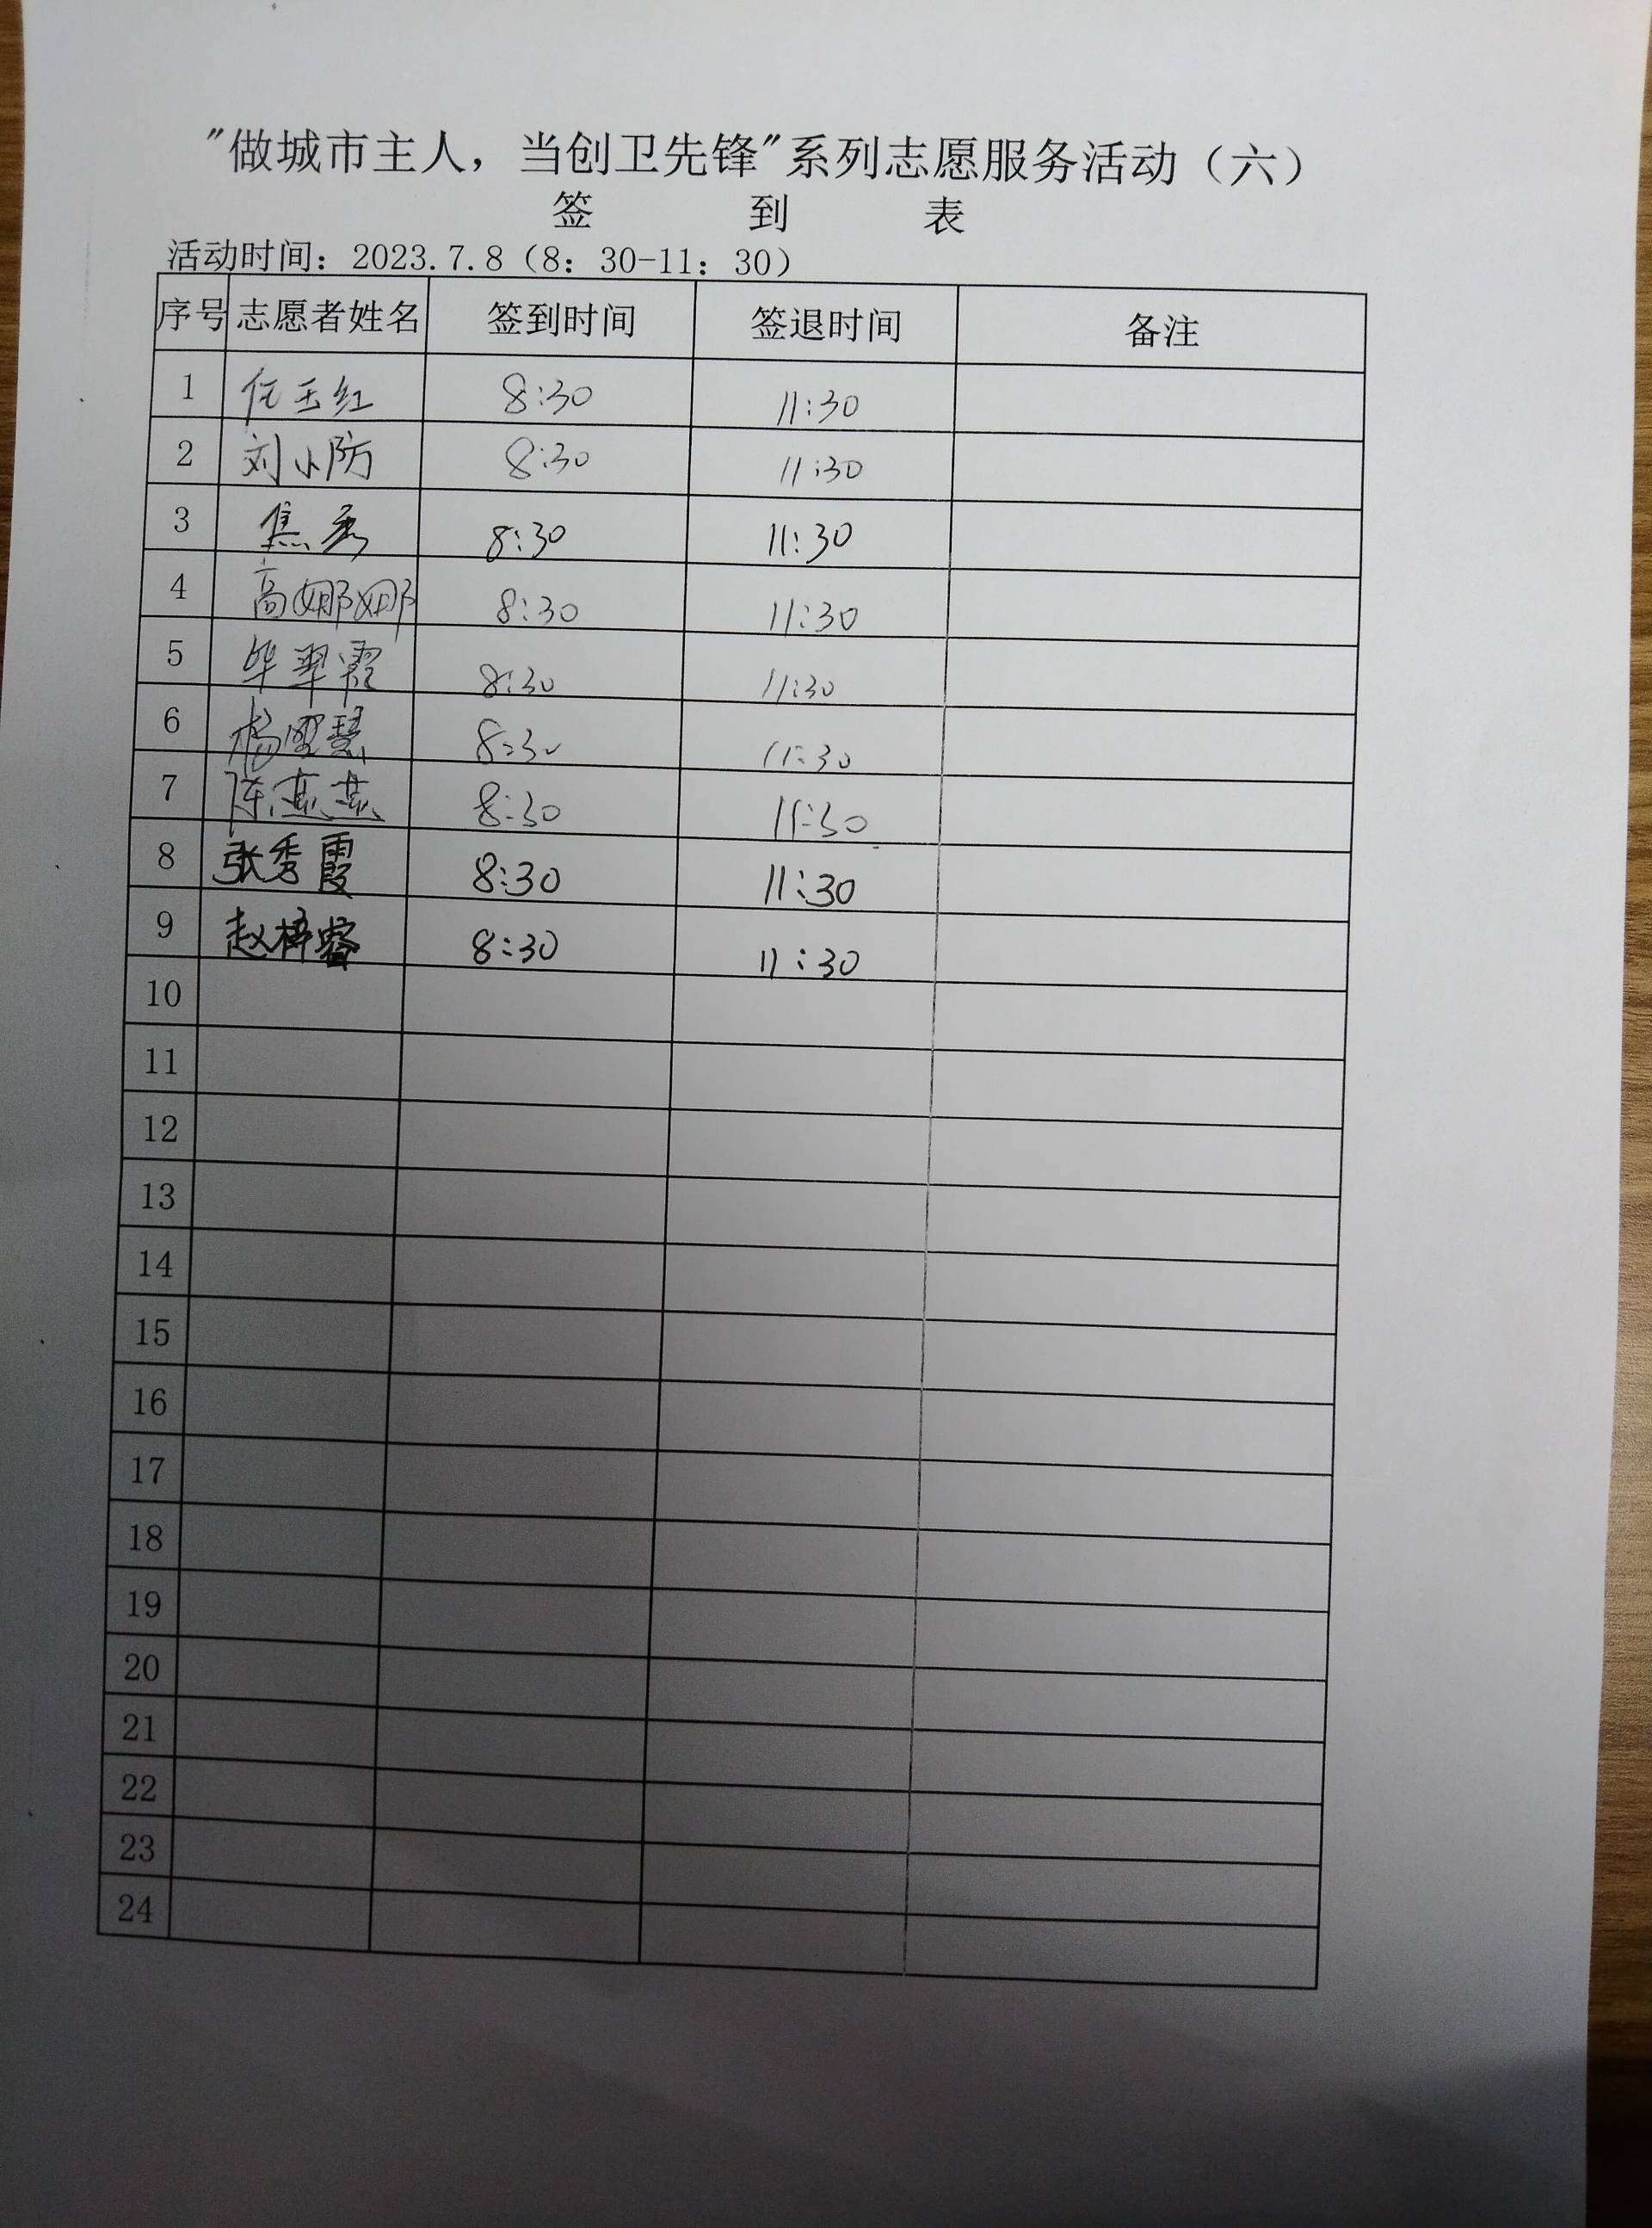 "做城市主人，当创卫先锋"系列志愿服务活动（六）
签 到 表
活动时间：2023.7.8（8：30-11：30）
序号 志愿者姓名 签到时间 签退时间 备注
1 任玉红 8:30 11:30
2 刘小防 8:30 11:30
3 焦秀 8:30 11:30
4 高娜娜 8:30 11:30
5 毕翠霞 8:30 11:30
6 杨 慧 8:30 11:30
7 陈燕燕 8:30 11:30
8 张秀霞 8:30 11:30
9 赵梓睿 8:30 11:30
10
11
12
13
14
15
16
17
18
19
20
21
22
23
24